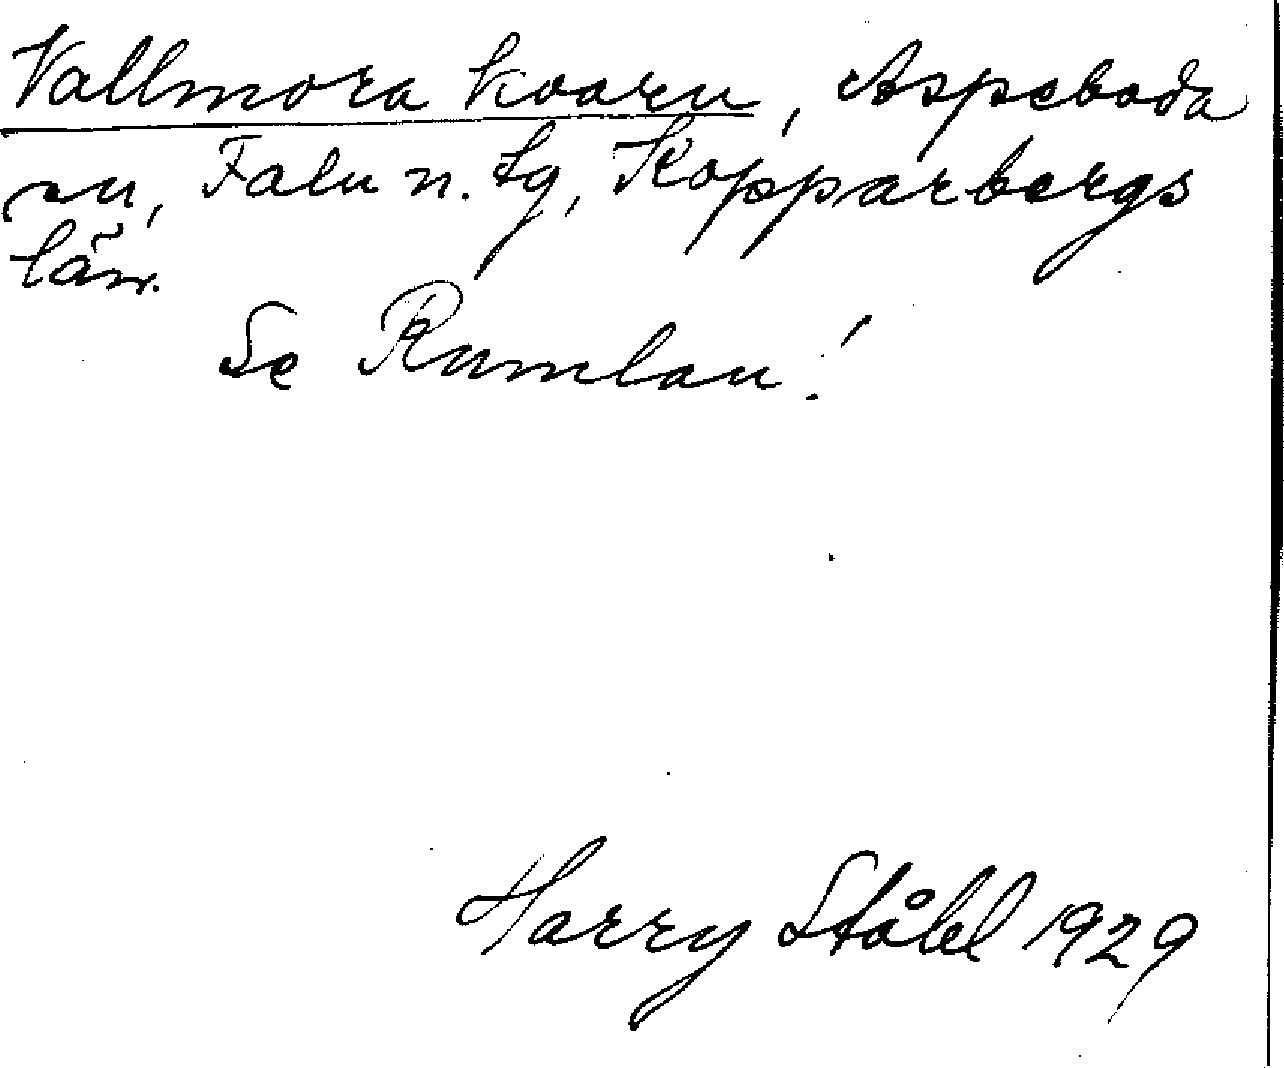 Vallmora kvarn, Aspeboda
sn, Falu n. tg, Kopparbergs
län.
Se Rumlan!
Harry Ståhl 1929